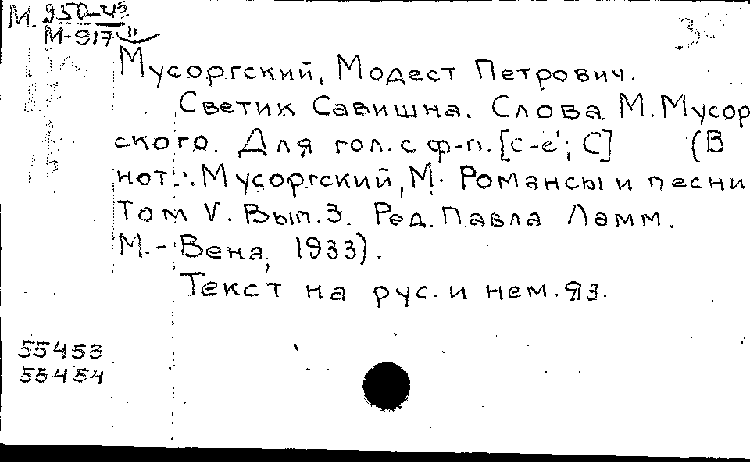 М. 950-49
М-917
Мусоргский, Модест Петрович.
Светик Савишна. Слова М. Мусор
ского. Для гол. с ф-п. [c-e'; C] (В
нот.: Мусоргский, М. Романсы и песни
Том V. Вып. 3. Ред. Павла Ламм.
М.-Вена, 1933).
Текст на рус. и нем. яз.
55453
55454